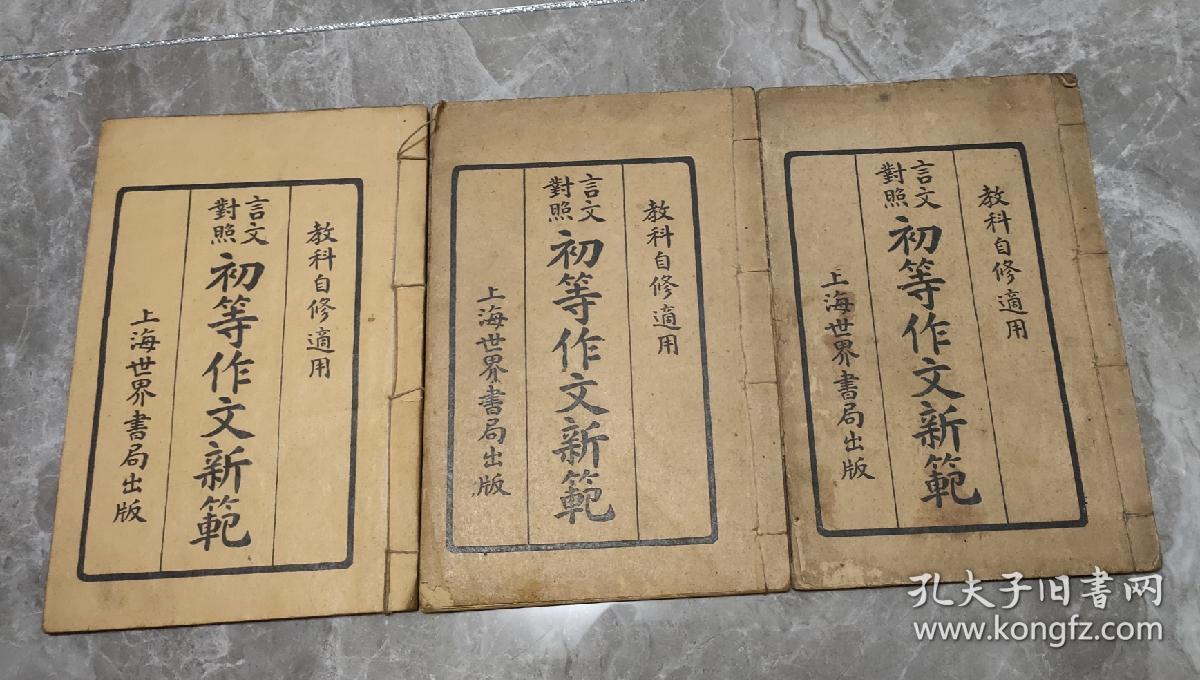 教科自修適用
言文對照
初等作文新範
上海世界書局出版
教科自修適用
言文對照
初等作文新範
上海世界書局出版
教科自修適用
言文對照
初等作文新範
上海世界書局出版
孔夫子旧書网
www.kongfz.com